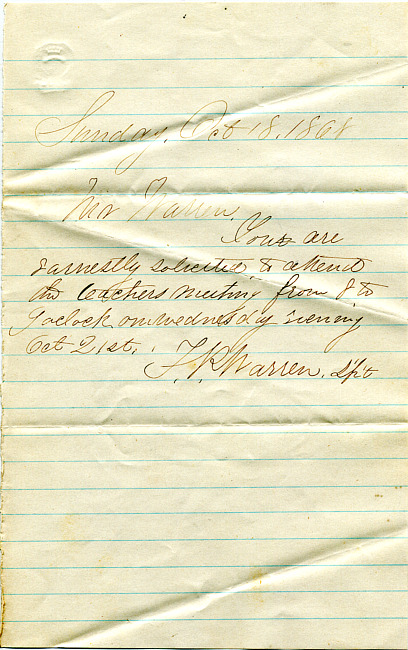 Sunday, Oct 18, 1868
Mr Warren,
You are
earnestly solicited to attend
the teachers meeting from 8 to
9 oclock on wednesday evening
Oct 21st.
F. R. Warren, Sp't